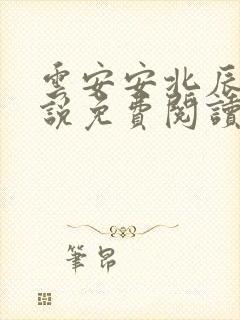 雲安安北辰
說免費閱讀
筆昂